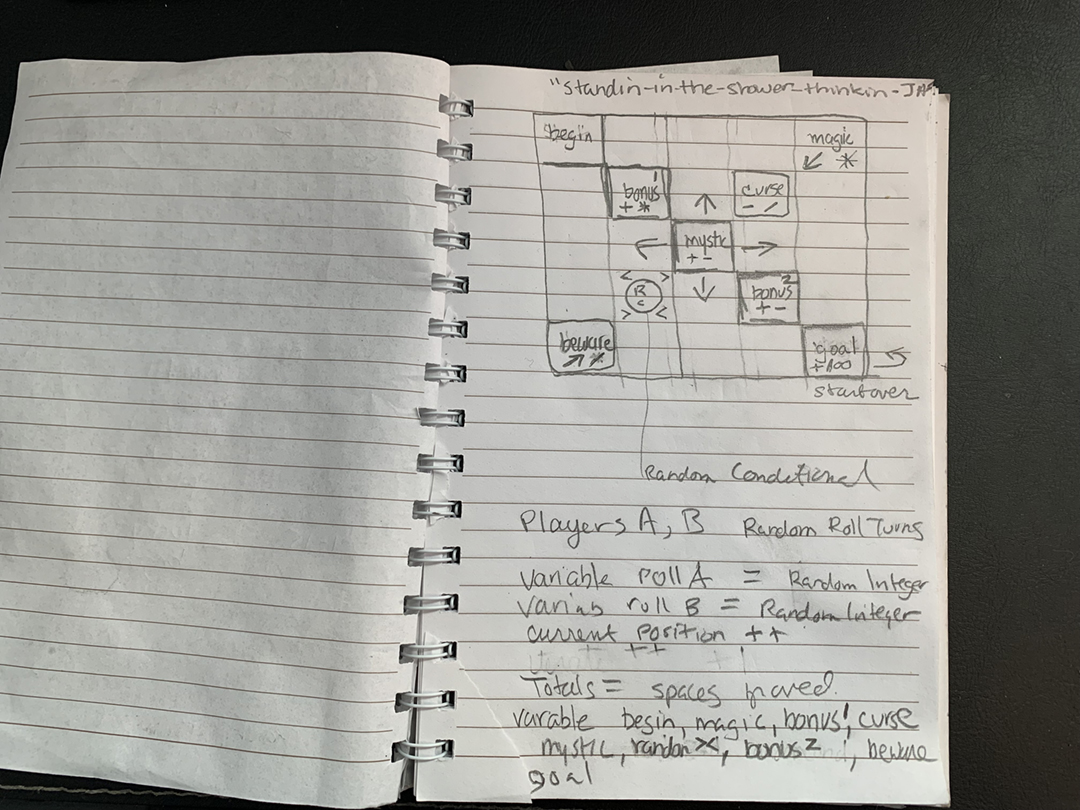 "standin-in-the-shower-thinkin-JAS
begin
magic
↙ *
bonus1
+ *
↑
curse
- /
←
mystic
+ -
→
R
c
↓
bonus2
+ -
beware
↗ *
goal
+100
startover
Random Conditional
Players A, B Random Roll Turns
variable roll A = Random Integer
variab roll B = Random Integer
current position ++
++
Totals = spaces moved.
varable begin, magic, bonus1, curse
mystic, random X, bonus2, beware
goal